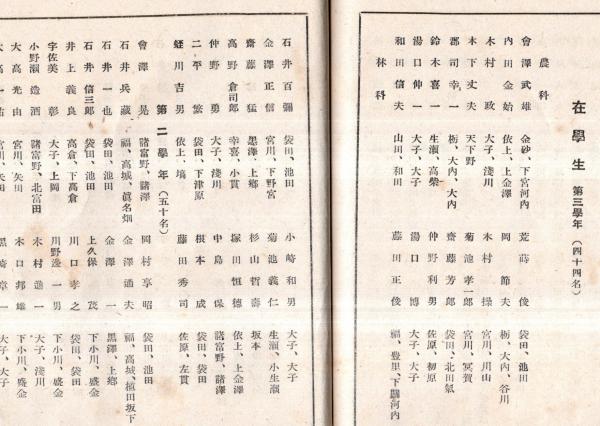 在學生 第三學年(四十四名)
農科
會澤武雄 金砂、下宮河内 荒蒔俊 袋田、池田
内田金始 依上、上金澤 岡節夫 栃、大内、谷川
木村政 大子、淺川 木村操 宮川、川山
木下丈夫 天下野 菊池孝一郎 宮川、冥賀
郡司幸一 栃、大内、大内 齋藤芳郎 袋田、北田氣
鈴木喜一 生瀬、高柴 仲野利男 佐原、初原
湯口伸一 大子、大子 湯口博 大子、大子
和田信夫 山田、和田 藤田正俊 福、豊里、下關河内
林科
石井百彌 袋田、池田 小崎和男 大子、大子
金澤正信 宮川、下野宮 菊池義仁 生瀬、小生瀬
齋藤猛 黒澤、上郷 杉山哲壽 坂本
高野倉司郎 幸喜、小貫 塚田恒德 依上、上金澤
仲野勇 大子、淺川 中島保 諸富野、諸澤
二平繁 袋田、下津原 根本成 袋田、袋田
蛭川吉男 依上、塙 藤田秀司 佐原、左貫
第二學年(五十名)
會澤晃 諸富野、諸澤 岡村享昭 袋田、池田
石井兵藏 福、高城、眞名畑 金澤通夫 福、高城、植田坂下
石井一也 袋田、池田 金澤一 黒澤、上郷
石井信三郎 袋田、池田 上久保茂 下小川、盛金
井上義良 高倉、下高倉 川口孝之 袋田、袋田
宇佐美彰 大子、上岡 川野邊一男 下小川、盛金
小野瀬造酒 諸富野、北富田 木村進一 大子、淺川
大高光由 宮川、矢田 木口邦雄 下小川、盛金
大高一 宮川、矢田 黒崎章一 大子、大子